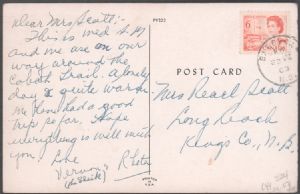 Dear Mrs Scott:-
This is wed A.M
and me are on our
way around the
Cabot Trail. A lovely
day & quite warm.
We have had a good
trip so far. Hope
everything is well with
you.
Love
Vernon & Reta
PV323
POST CARD
6
Mrs Pearl Scott
Long Reach
Kings Co., N.B.